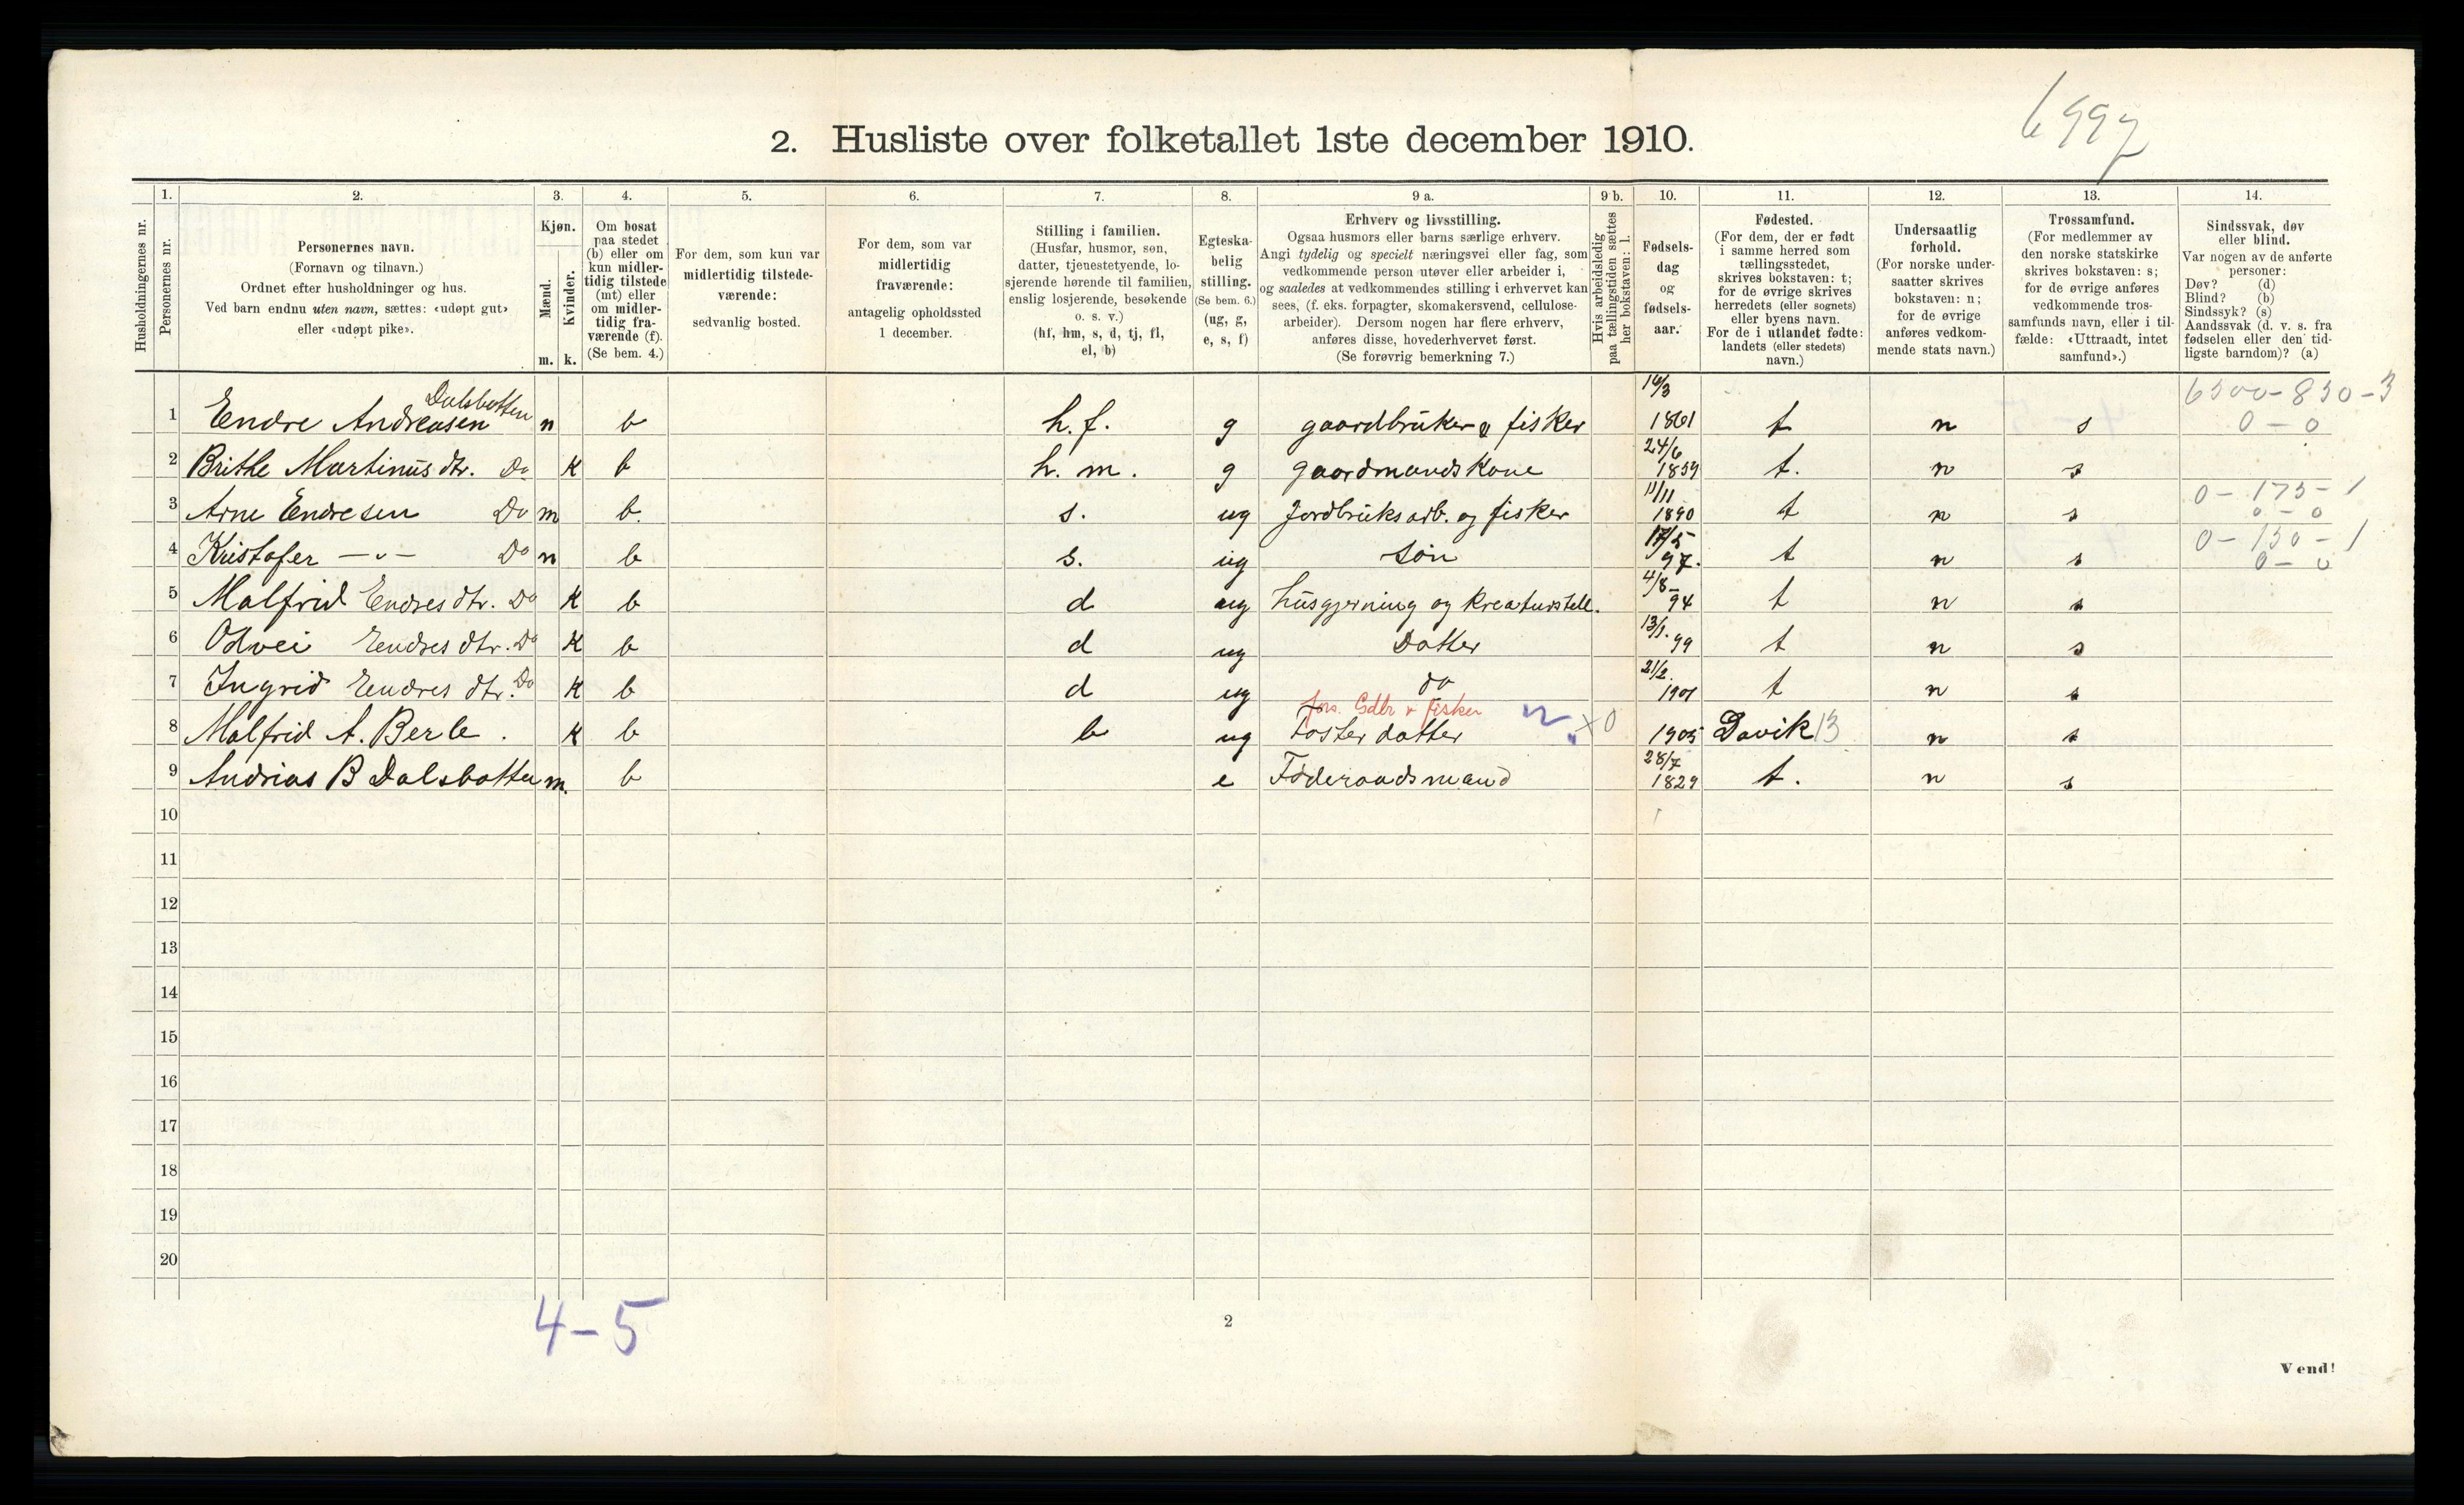 6997
2. Husliste over folketallet 1ste december 1910.
Husholdningernes nr.
1.
Personernes nr.
2.
Personernes navn.
(Fornavn og tilnavn.)
Ordnet efter husholdninger og hus.
Ved barn endnu uten navn, sættes: «udøpt gut»
eller «udøpt pike».
3.
Kjøn.
Mænd.
Kvinder.
m. k.
4.
Om bosat
paa stedet
(b) eller om
kun midler-
tidig tilstede
(mt) eller
om midler-
tidig fra-
værende (f).
(Se bem. 4.)
5.
For dem, som kun var
midlertidig tilstede-
værende:
sedvanlig bosted.
6.
For dem, som var
midlertidig
fraværende:
antagelig opholdssted
1 december.
7.
Stilling i familien.
(Husfar, husmor, søn,
datter, tjenestetyende, lo-
sjerende hørende til familien,
enslig losjerende, besøkende
o. s. v.)
(hf, hm, s, d, tj, fl,
el, b)
8.
Egteska-
belig
stilling.
(Se bem. 6.)
(ug, g,
e, s, f)
9 a.
Erhverv og livsstilling.
Ogsaa husmors eller barns særlige erhverv.
Angi tydelig og specielt næringsvei eller fag, som
vedkommende person utøver eller arbeider i,
og saaledes at vedkommendes stilling i erhvervet kan
sees, (f. eks. forpagter, skomakersvend, cellulose-
arbeider). Dersom nogen har flere erhverv,
anføres disse, hovederhvervet først.
(Se forøvrig bemerkning 7.)
9 b.
Hvis arbeidsledig
paa tællingstiden sættes
her bokstaven: l.
10.
Fødsels-
dag
og
fødsels-
aar.
11.
Fødested.
(For dem, der er født
i samme herred som
tællingsstedet,
skrives bokstaven: t;
for de øvrige skrives
herredets (eller sognets)
eller byens navn.
For de i utlandet fødte:
landets (eller stedets)
navn.)
12.
Undersaatlig
forhold.
(For norske under-
saatter skrives
bokstaven: n;
for de øvrige
anføres vedkom-
mende stats navn.)
13.
Trossamfund.
(For medlemmer av
den norske statskirke
skrives bokstaven: s;
for de øvrige anføres
vedkommende tros-
samfunds navn, eller i til-
fælde: «Uttraadt, intet
samfund».)
14.
Sindssvak, døv
eller blind.
Var nogen av de anførte
personer:
Døv? (d)
Blind? (b)
Sindssyk? (s)
Aandssvak (d. v. s. fra
fødselen eller den tid-
ligste barndom)? (a)
Dalsbotten 14/3 6500-850-3
1 Endre Andreasen m b h.f. g gaardbruker & fisker 1861 t n s 0-0
24/6
2 Brithe Martinus dtr. Do K b h.m. g gaardmandskone 1859 t. n s
11/11 0-175-1
3 Arne Endresen Do m b. s. ug Jordbruksarb. og fisker 1890 t n s 0-0
17/5 0-150-1
4 Kristofer -"- Do m b s. ug søn 97. t n s 0-0
4/8
5 Malfrid Endres dtr. Do K b d ug husgjerning og kreaturstell. 94 t n s
13/1.
6 Odvei Endres dtr. Do K b d ug Datter 99 t n s
21/2.
7 Ingrid Endres dtr. Do K b d ug do 1901 t n s
fors. Gdbr & fisker
8 Malfrid A. Berle. K b b ug Foster datter x0 1905 Davik 13 n s
28/7
9 Andrias B Dalsbotten m. b e Føderaadsmand 1829 t. n s
10
11
12
13
14
15
16
17
18
19
20
4-5
2
Vend!